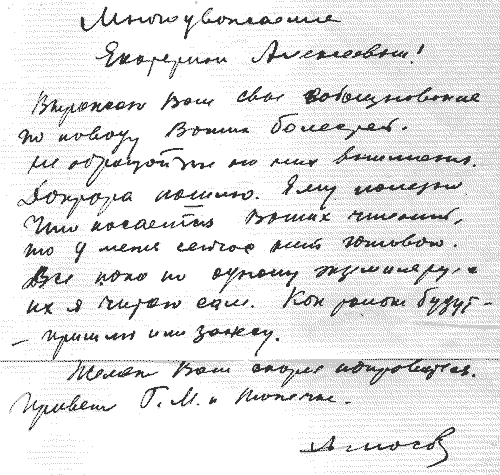 Многоуважаемые
Екатерина Алексеевна!
Выражаю Вам свое соболезнование
по поводу Ваших болезней.
Не обращайте на них внимания.
Доктора пошлю. Ему полезно
Что касается Ваших чтений,
то у меня сейчас нет готовой.
Все пока по одному экземпляру, а
их я читаю сам. Как только будут -
- пришлю или завезу.
Желаю Вам скорее поправиться.
Привет Г. М. и Танечке.
Амосов